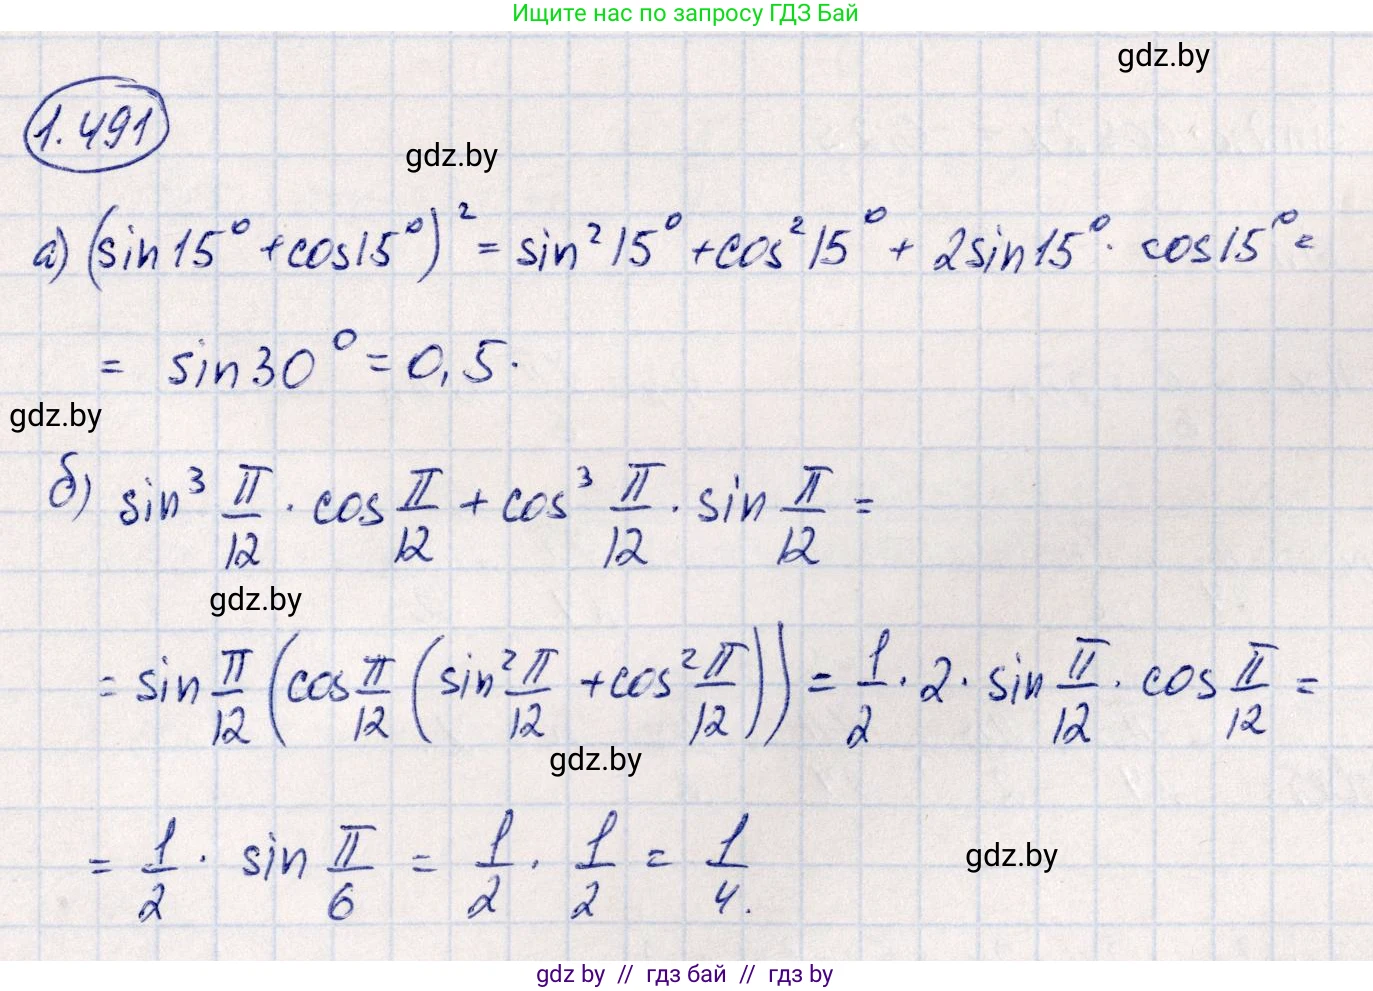 Ищите нас по запросу ГДЗ Бай
gdz.by
1.491
gdz.by
а) (sin15° + cos15°)² = sin²15° + cos²15° + 2sin15° · cos15° =
= sin30° = 0,5.
gdz.by
б) sin³ π/12 · cos π/12 + cos³ π/12 · sin π/12 =
gdz.by
= sin π/12 (cos π/12 (sin² π/12 + cos² π/12)) = 1/2 · 2 · sin π/12 · cos π/12 =
gdz.by
= 1/2 · sin π/6 = 1/2 · 1/2 = 1/4.
gdz.by
gdz by // гдз бай // гдз by